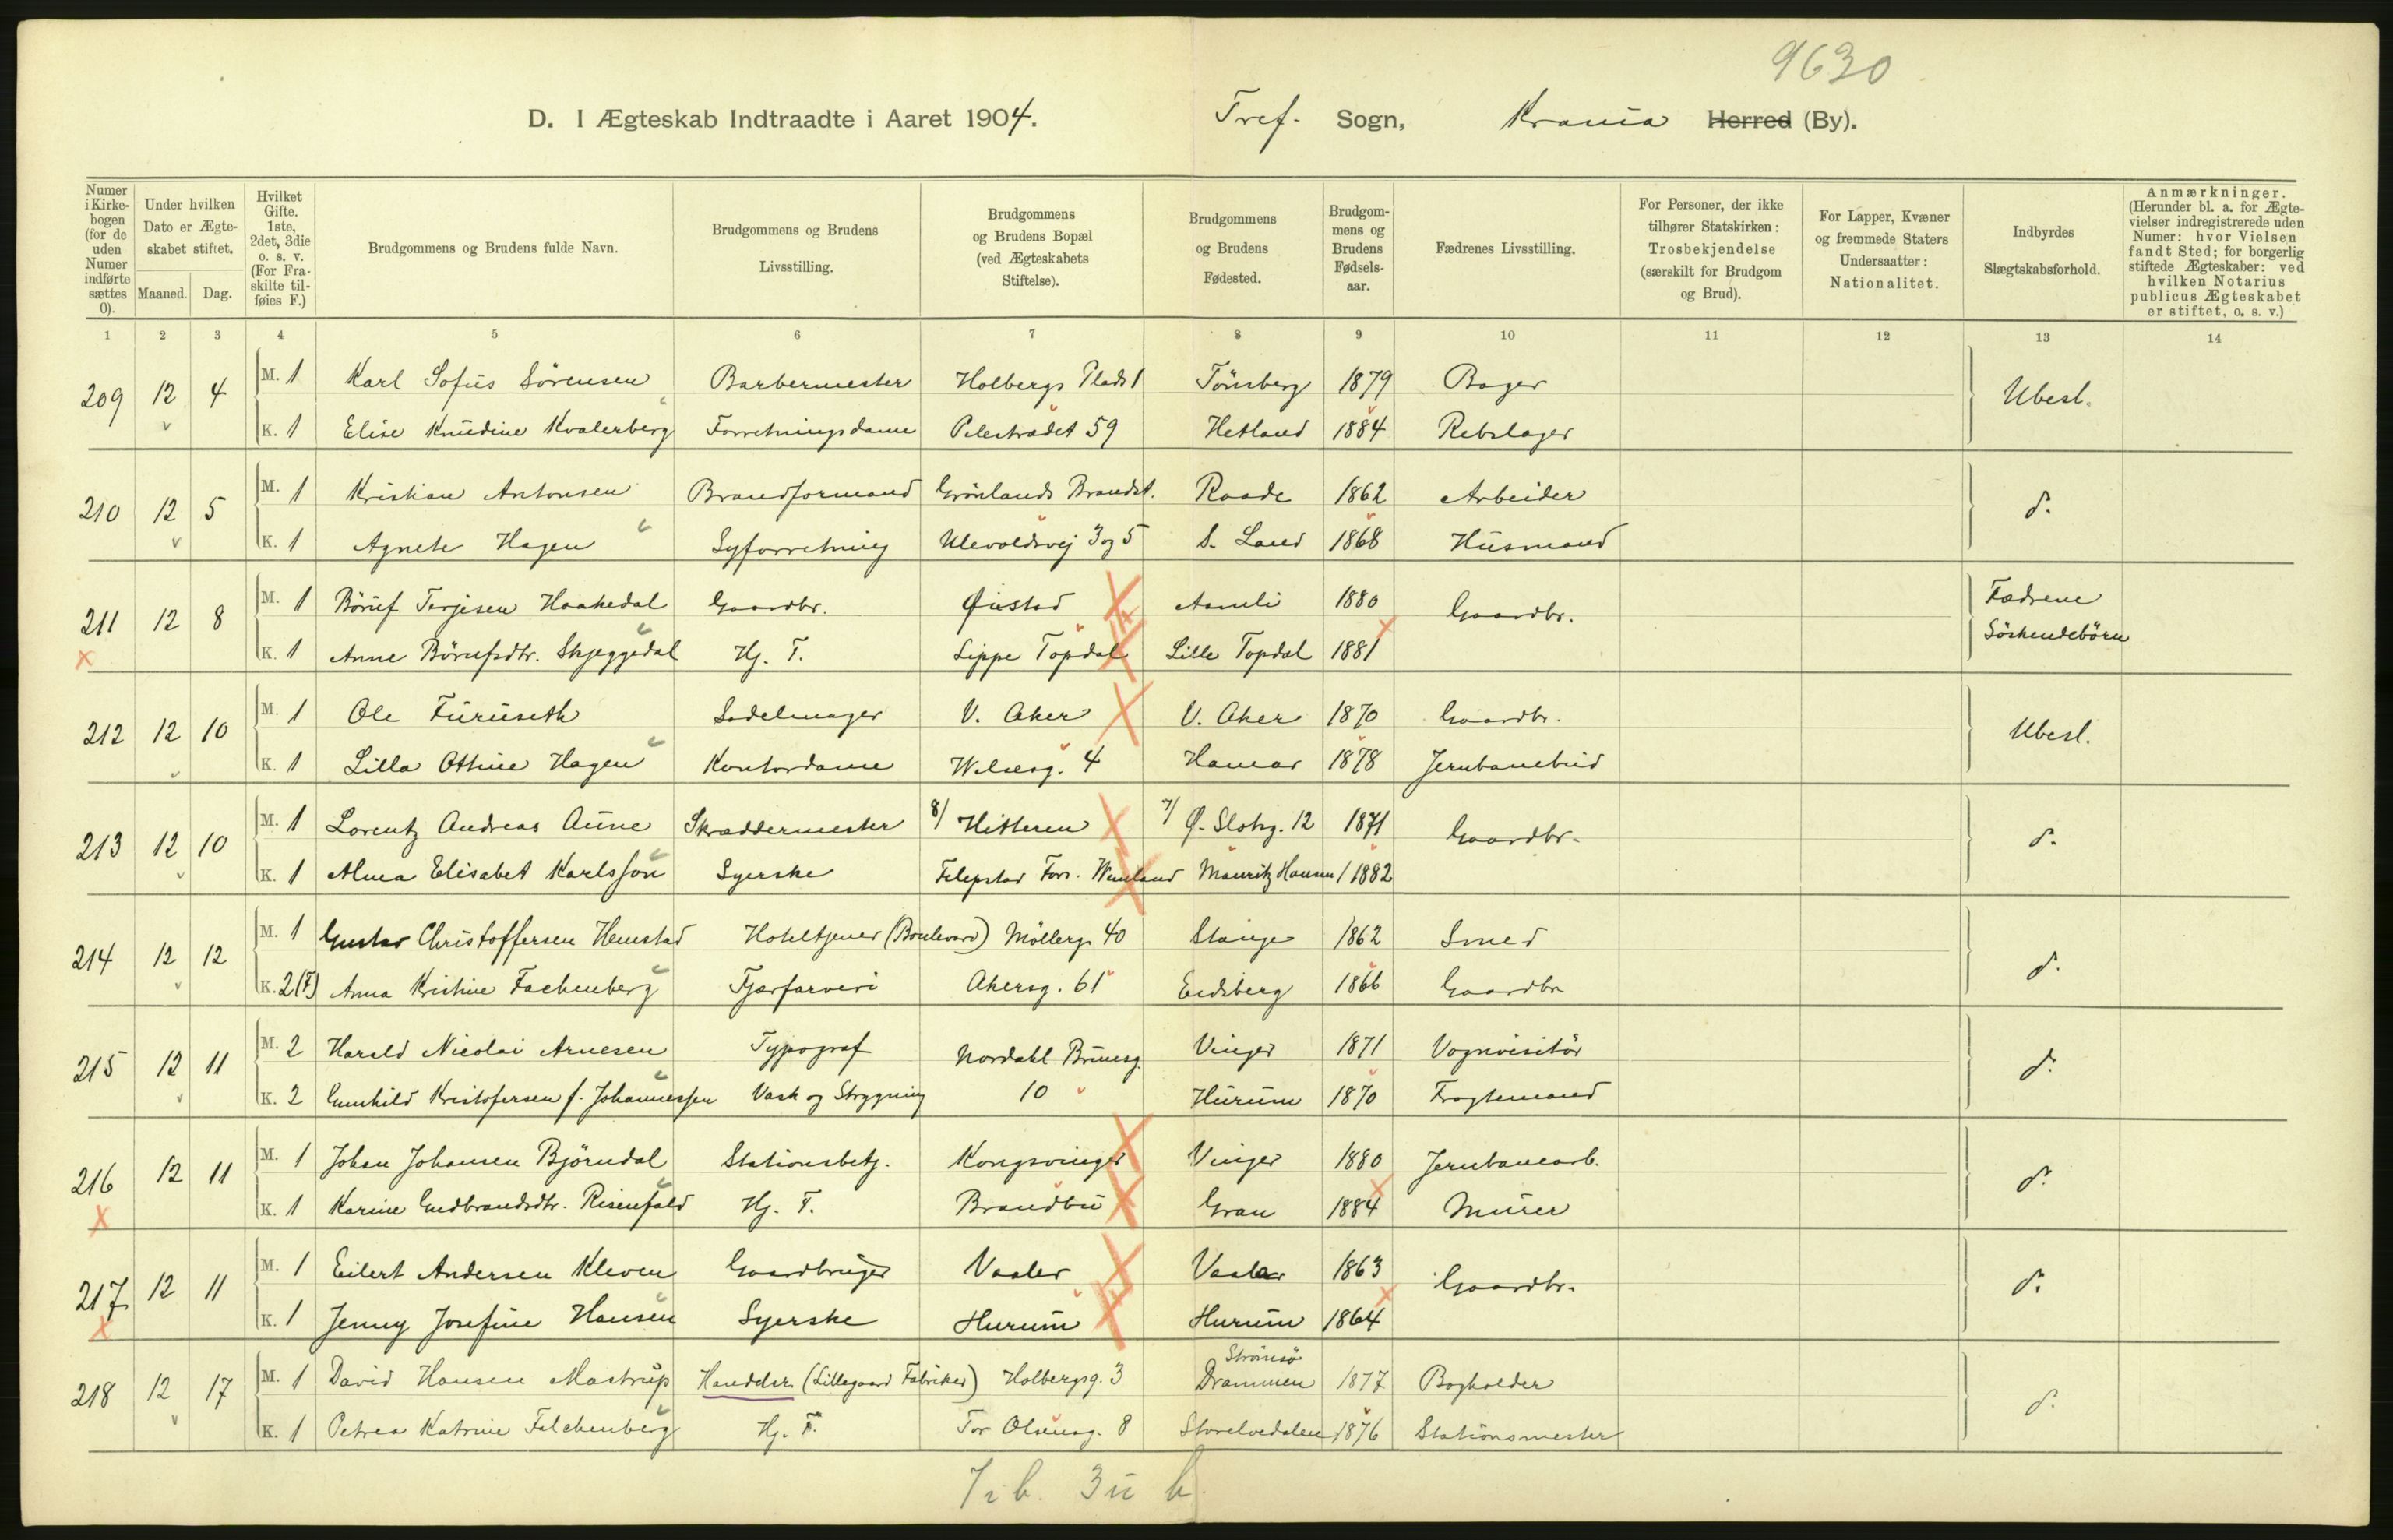 9630
D. I Ægteskab Indtraadte i Aaret 1904. Tref. Sogn, Krania Herred (By).
Numer i Kirkebogen (for de uden Numer indførte sættes 0).
Under hvilken Dato er Ægteskabet stiftet. Maaned. Dag.
Hvilket Gifte. 1ste, 2det, 3die o. s. v. (For Fraskilte tilføies F.)
Brudgommens og Brudens fulde Navn.
Brudgommens og Brudens Livsstilling.
Brudgommens og Brudens Bopæl (ved Ægteskabets Stiftelse).
Brudgommens og Brudens Fødested.
Brudgommens og Brudens Fødselsaar.
Fædrenes Livsstilling.
For Personer, der ikke tilhører Statskirken: Trosbekjendelse (særskilt for Brudgom og Brud).
For Lapper, Kvæner og fremmede Staters Undersaatter: Nationalitet.
Indbyrdes Slægtskabsforhold.
Anmærkninger. (Herunder bl. a. for Ægtevielser indregistrerede uden Numer: hvor Vielsen fandt Sted; for borgerlig stiftede Ægteskaber: ved hvilken Notarius publicus Ægteskabet er stiftet, o. s. v.)
1 2 3 4 5 6 7 8 9 10 11 12 13 14
209 12 4 M. 1 Karl Sofus Sörensen Barbermester Holbergs Plads 1 Tönsberg 1879 Bager Ubesl.
K. 1 Elise Knudine Kvalerberg Forretningsdame Pilestrædet 59 Hetland 1884 Rebslager
210 12 5 M. 1 Kristian Antonsen Brandformand Grönlands Brandst. Raade 1862 Arbeider d.
K. 1 Agnete Hagen Syforretning Ulevoldsvej 3 og 5 S. Land 1868 Husmand
211 12 8 M. 1 Böruf Terjesen Haakedal Gaardbr. Øiestad Aamli 1880 Gaardbr. Fædrene Söskendebörn
K. 1 Anne Börufsdtr. Skjeggedal Hj. T. Lippe Topdal Lille Topdal 1881
212 12 10 M. 1 Ole Furuseth Sadelmager V. Aker V. Aker 1870 Gaardbr. Ubesl.
K. 1 Lilla Othine Hagen Kontordame Welseg. 4 Hamar 1878 Jernbanebud
213 12 10 M. 1 Lorentz Andreas Aune Skræddermester 8/ Hitteren 7/ Ø. Slotsg. 12 1871 Gaardbr. d.
K. 1 Alma Elisabet Karlsson Syerske Filepstad Fors. Wermland Mauritz Hansen / 1882
214 12 12 M. 1 Gustav Christoffersen Hemstad Hoteltjener (Boulevard) Möllerg. 40 Stange 1862 Smed d.
K. 2 (F) Anna Kristine Fachenberg Fjærfarveri Akersg. 61 Eidsberg 1866 Gaardbr.
215 12 11 M. 2 Harald Nicolai Arnesen Typograf Nordahl Brunsg. Vinger 1871 Vognvisitör d.
K. 2 Gunhild Kristofersen f. Johannessen Vask og Strygning 10 Hurum 1870 Fragtemand
216 12 11 M. 1 Johan Johansen Björndal Stationsbetj. Kongsvinger Vinger 1880 Jernbanearb. d.
K. 1 Karine Gudbrandsdtr. Risenfald Hj. T. Brandbu Gran 1884 Murer
217 12 11 M. 1 Eilert Andersen Kleven Gaardbruger Vaaler Vaaler 1863 Gaardbr. d.
K. 1 Jenny Josefine Hansen Syerske Hurum Hurum 1864
218 12 17 M. 1 David Hansen Mastrup Handelsr. (Lillegaard Fabriker) Holbergsg. 3 Strömsö Drammen 1877 Bogholder d.
K. 1 Petrea Katrine Falchenberg Hj. F. Tor Olsensg. 8 Storelvedalen 1876 Stationsmester
7 i b. 3 u b.